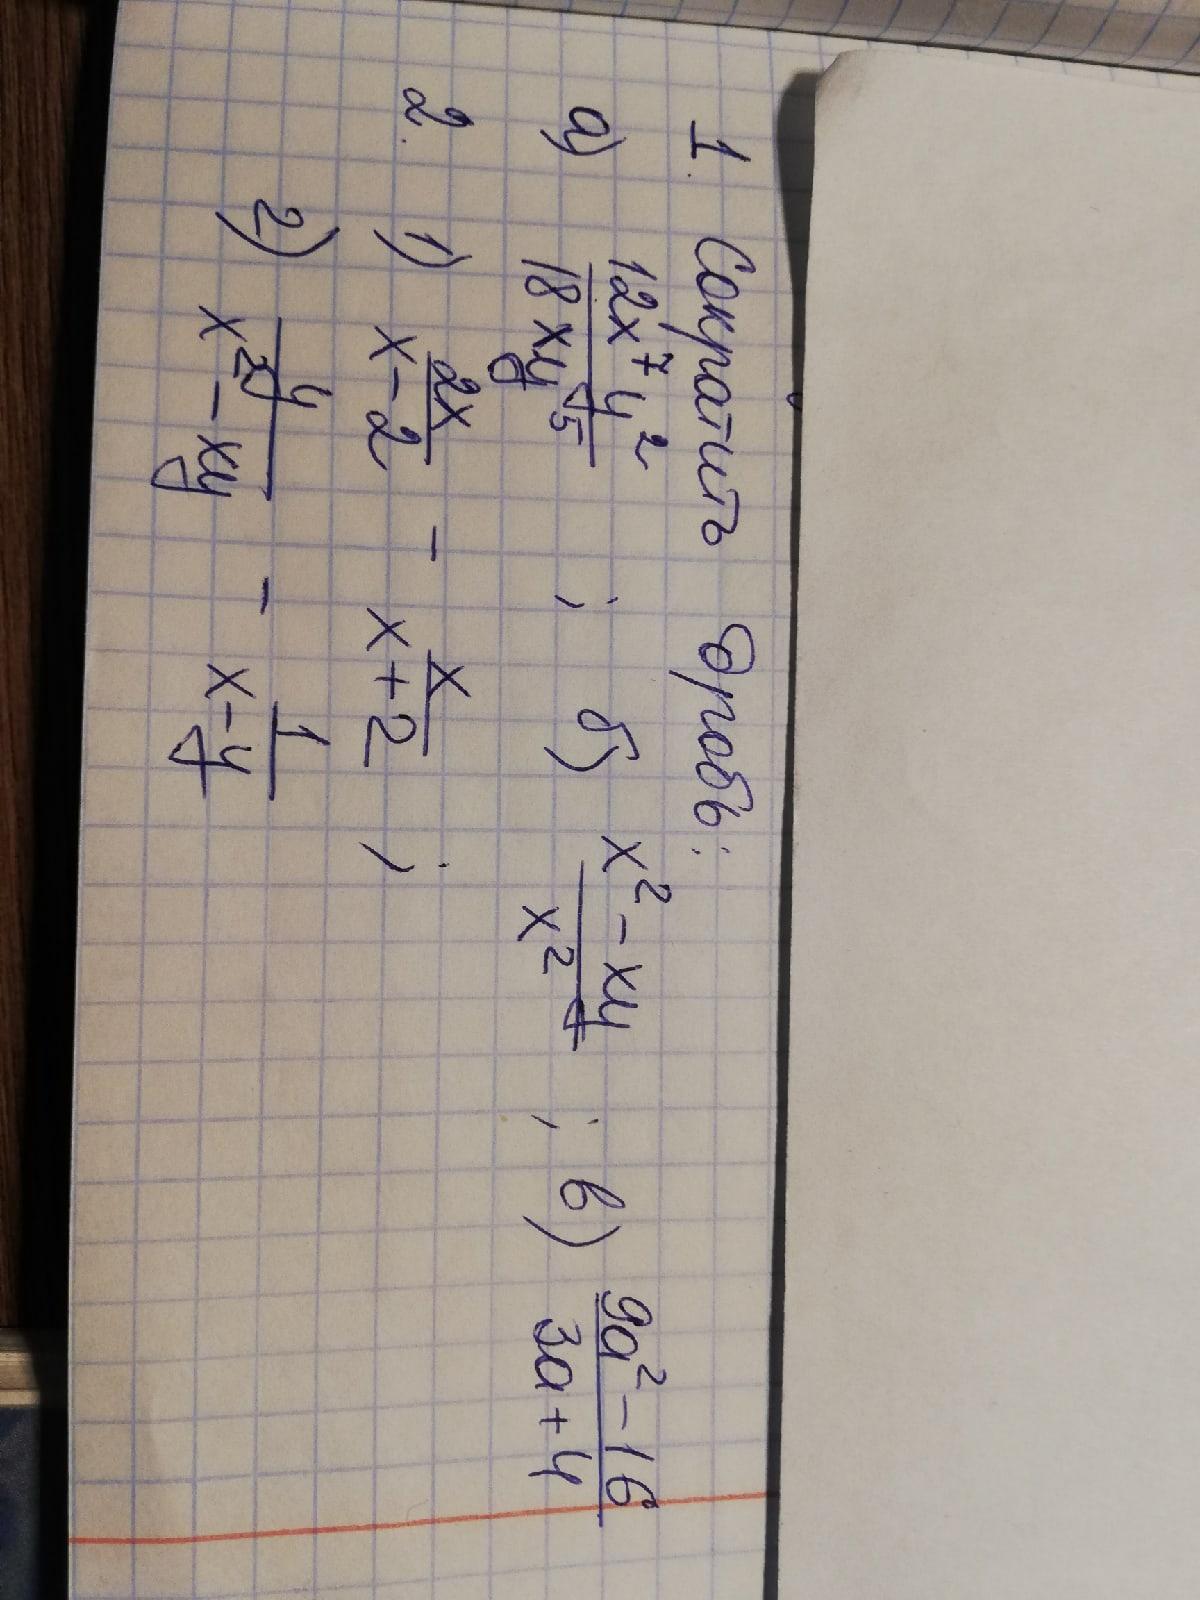 1. Сократить дробь:
а) 12x⁷y² / 18xy⁵ ; б) x² - xy / x² ; в) 9a² - 16 / 3a + 4
2. 1) 2x / x - 2 - x / x + 2 ;
2) y / x² - xy - 1 / x - y